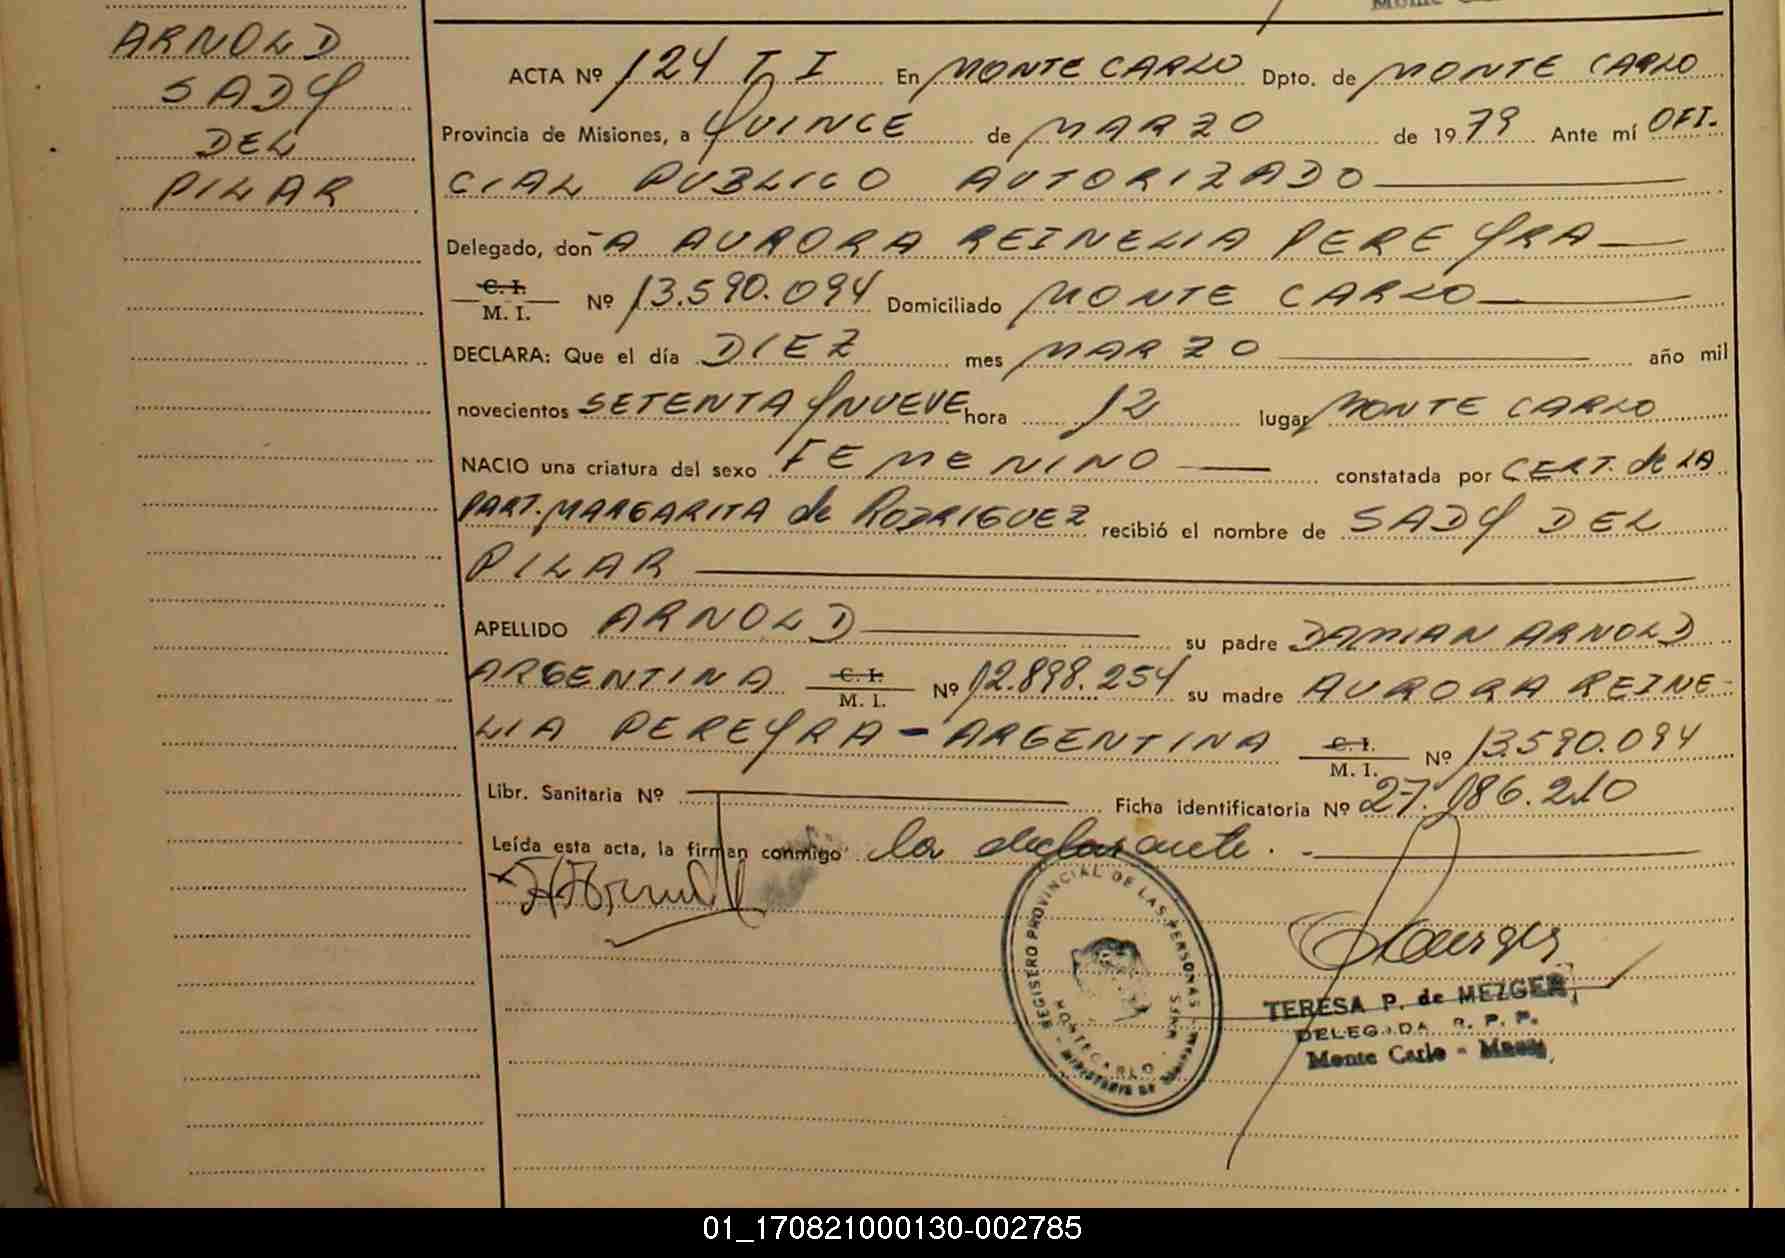 ARNOLD
SADY
DEL
PILAR
ACTA Nº 124 T I En MONTE CARLO Dpto. de MONTE CARLO
Provincia de Misiones, a QUINCE de MARZO de 1979 Ante mí OFI-
CIAL PUBLICO AUTORIZADO
Delegado, don-A AURORA REINELIA PEREYRA
C. I. M. I. Nº 13.590.094 Domiciliado MONTE CARLO
DECLARA: Que el día DIEZ mes MARZO año mil
novecientos SETENTA Y NUEVE hora 12 lugar MONTE CARLO
NACIO una criatura del sexo FEMENINO constatada por CERT. de LA
PART. MARGARITA de RODRIGUEZ recibió el nombre de SADY DEL
PILAR
APELLIDO ARNOLD su padre DAMIAN ARNOLD
ARGENTINA C. I. M. I. Nº 12.898.254 su madre AURORA REINE-
LIA PEREYRA - ARGENTINA C. I. M. I. Nº 13.590.094
Libr. Sanitaria Nº Ficha identificatoria Nº 27.186.210
Leída esta acta, la firman conmigo la declarante.
REGISTRO PROVINCIAL DE LAS PERSONAS
MONTECARLO
MINISTERIO DE
TERESA P. de MEZGER
DELEGADA R. P. P.
Monte Carlo -
01_170821000130-002785